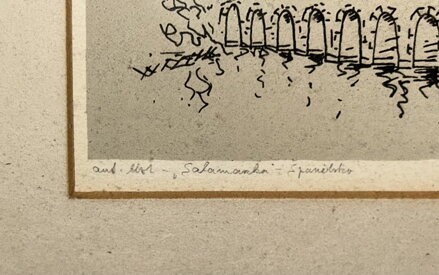 aut. list – „Salamanka" – Španělsko